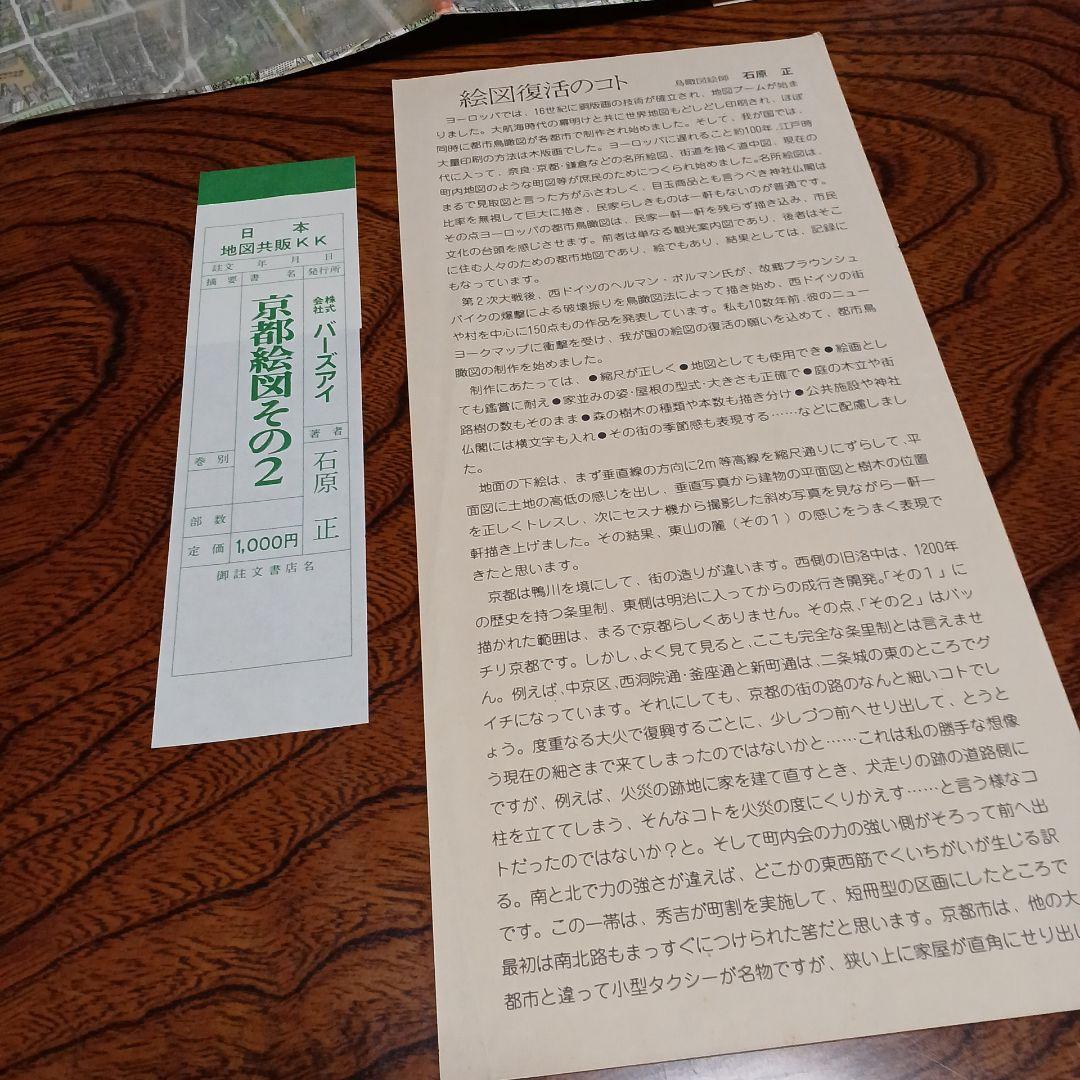 日本
地図共販KK
註文 年 月 日
摘要 書名 発行所
京都絵図その2
株式会社 バーズアイ
著者
石原 正
巻別
部数
定価 1,000円
御註文書店名
絵図復活のコト 鳥瞰図絵師 石原 正
ヨーロッパでは、16世紀に銅版画の技術が確立され、地図ブームが始ま
りました。大航海時代の幕明けと共に世界地図もどしどし印刷され、ほぼ
同時に都市鳥瞰図が各都市で制作され始めました。そして、我が国では、
大量印刷の方法は木版画でした。ヨーロッパに遅れること約100年、江戸時
代に入って、奈良・京都・鎌倉などの名所絵図、街道を描く道中図、現在の
町内地図のような町図等が庶民のためにつくられ始めました。名所絵図は、
まるで見取図と言った方がふさわしく、目玉商品とも言うべき神社仏閣は
比率を無視して巨大に描き、民家らしきものは一軒もないのが普通です。
その点ヨーロッパの都市鳥瞰図は、民家一軒一軒を残らず描き込み、市民
文化の台頭を感じさせます。前者は単なる観光案内図であり、後者はそこ
に住む人々のための都市地図であり、絵でもあり、結果としては、記録に
もなっています。
第2次大戦後、西ドイツのヘルマン・ボルマン氏が、故郷ブラウンシュ
バイクの爆撃による破壊振りを鳥瞰図法によって描き始め、西ドイツの街
や村を中心に150点もの作品を発表しています。私も10数年前、彼のニュー
ヨークマップに衝撃を受け、我が国の絵図の復活の願いを込めて、都市鳥
瞰図の制作を始めました。
制作にあたっては、●縮尺が正しく●地図としても使用でき●絵画とし
ても鑑賞に耐え●家並みの姿・屋根の型式・大きさも正確で●庭の木立や街
路樹の数もそのまま●森の樹木の種類や本数も描き分け●公共施設や神社
仏閣には横文字も入れ●その街の季節感も表現する……などに配慮しまし
た。
地面の下絵は、まず垂直線の方向に2m等高線を縮尺通りにずらして、平
面図に土地の高低の感じを出し、垂直写真から建物の平面図と樹木の位置
を正しくトレスし、次にセスナ機から撮影した斜め写真を見ながら一軒一
軒描き上げました。その結果、東山の麓（その1）の感じをうまく表現で
きたと思います。
京都は鴨川を境にして、街の造りが違います。西側の旧洛中は、1200年
の歴史を持つ条里制、東側は明治に入ってからの成行き開発。「その1」に
描かれた範囲は、まるで京都らしくありません。その点、「その2」はバッ
チリ京都です。しかし、よく見て見ると、ここも完全な条里制とは言えませ
ん。例えば、中京区、西洞院通・釜座通と新町通は、二条城の東のところでグ
イチになっています。それにしても、京都の街の路のなんと細いコトでし
ょう。度重なる大火で復興するごとに、少しづつ前へせり出して、とうと
う現在の細さまで来てしまったのではないかと……これは私の勝手な想像
ですが、例えば、火災の跡地に家を建て直すとき、犬走りの跡の道路側に
柱を立ててしまう、そんなコトを火災の度にくりかえす……と言う様なコ
トだったのではないか？と。そして町内会の力の強い側がそろって前へ出
る。南と北で力の強さが違えば、どこかの東西筋でくいちがいが生じる訳
です。この一帯は、秀吉が町割を実施して、短冊型の区画にしたところで
最初は南北路もまっすぐにつけられた筈だと思います。京都市は、他の大
都市と違って小型タクシーが名物ですが、狭い上に家屋が直角にせり出し